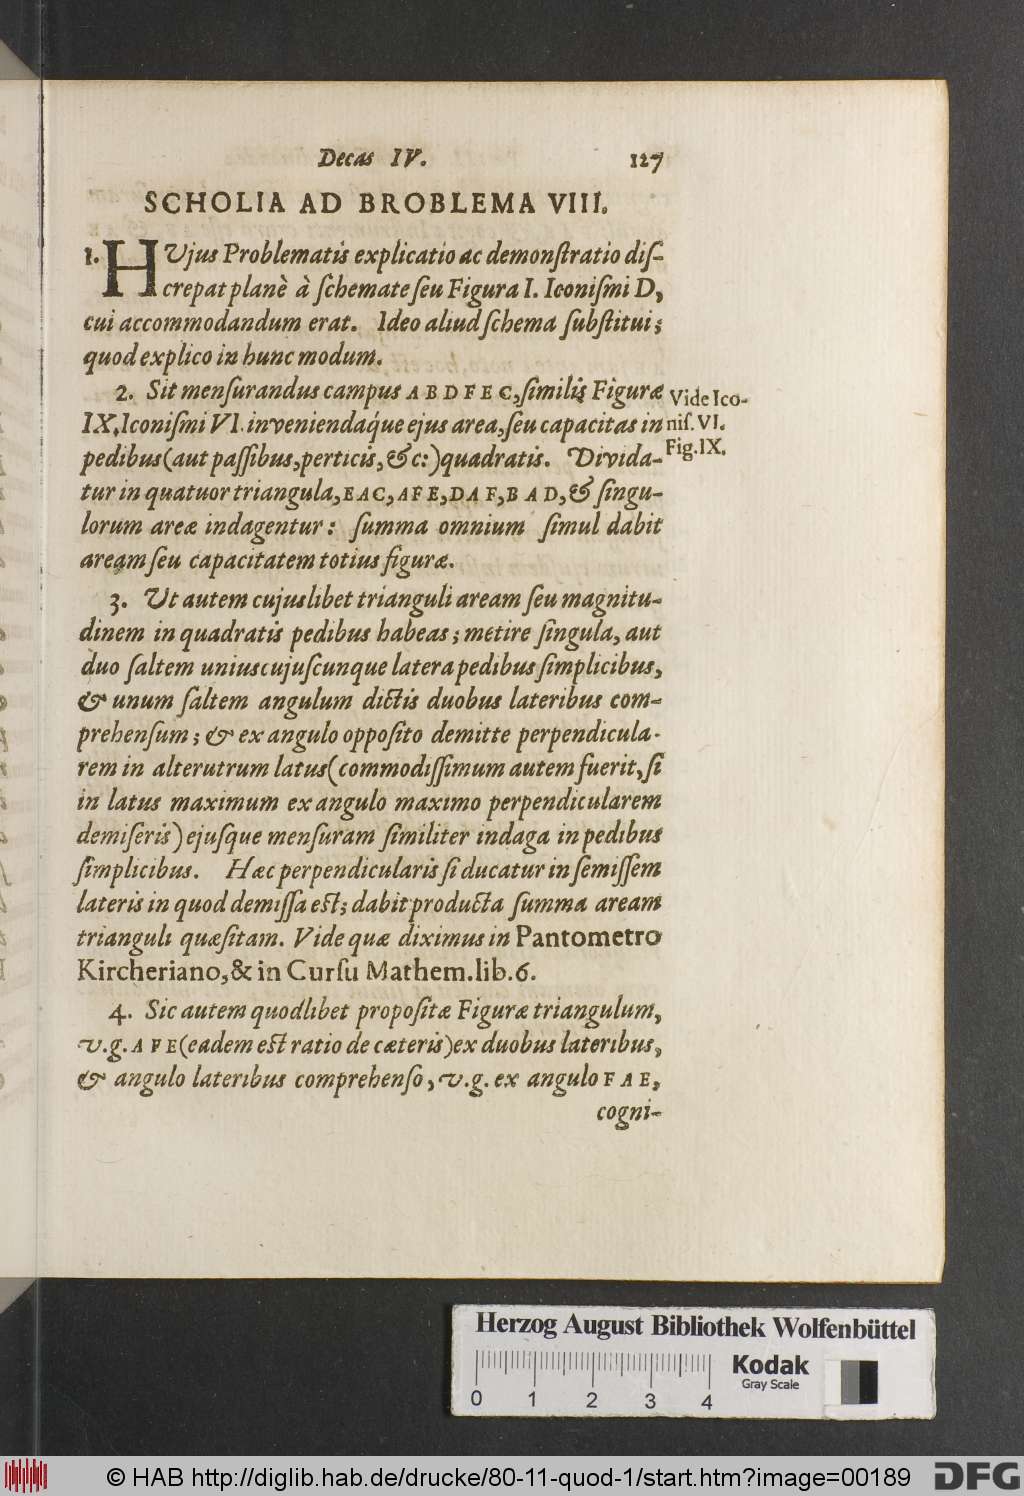 Decas IV. 127
SCHOLIA AD BROBLEMA VIII.
1. HUjus Problematis explicatio ac demonſtratio diſ-
crepat planè à ſchemate ſeu Figura I. Iconiſmi D,
cui accommodandum erat. Ideo aliud ſchema ſubſtitui;
quod explico in hunc modum.
2. Sit menſurandus campus A B D F E C, ſimilis Figuræ
IX, Iconiſmi VI. inveniendáque ejus area, ſeu capacitas in
pedibus (aut paſſibus, perticis, &c:) quadratis. Divida-
tur in quatuor triangula, E A C, A F E, D A F, B A D, & ſingu-
lorum areæ indagentur: ſumma omnium ſimul dabit
aream ſeu capacitatem totius figuræ.
Vide Ico-
niſ. VI.
Fig. IX.
3. Ut autem cujuslibet trianguli aream ſeu magnitu-
dinem in quadratis pedibus habeas; metire ſingula, aut
duo ſaltem uniuscujuſcunque latera pedibus ſimplicibus,
& unum ſaltem angulum dictis duobus lateribus com-
prehenſum; & ex angulo oppoſito demitte perpendicula-
rem in alterutrum latus (commodiſſimum autem fuerit, ſi
in latus maximum ex angulo maximo perpendicularem
demiſeris) ejuſque menſuram ſimiliter indaga in pedibus
ſimplicibus. Hæc perpendicularis ſi ducatur in ſemiſſem
lateris in quod demiſſa eſt; dabit producta ſumma aream
trianguli quæſitam. Vide quæ diximus in Pantometro
Kircheriano, & in Curſu Mathem. lib. 6.
4. Sic autem quodlibet propoſitæ Figuræ triangulum,
v. g. A F E (eadem eſt ratio de cæteris) ex duobus lateribus,
& angulo lateribus comprehenſo, v. g. ex angulo F A E,
cogni-
Herzog August Bibliothek Wolfenbüttel
Kodak
Gray Scale
0 1 2 3 4
© HAB http://diglib.hab.de/drucke/80-11-quod-1/start.htm?image=00189
DFG